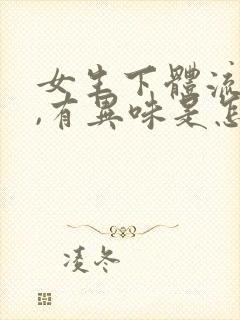 女生下體流
,有異味是怎
凌冬